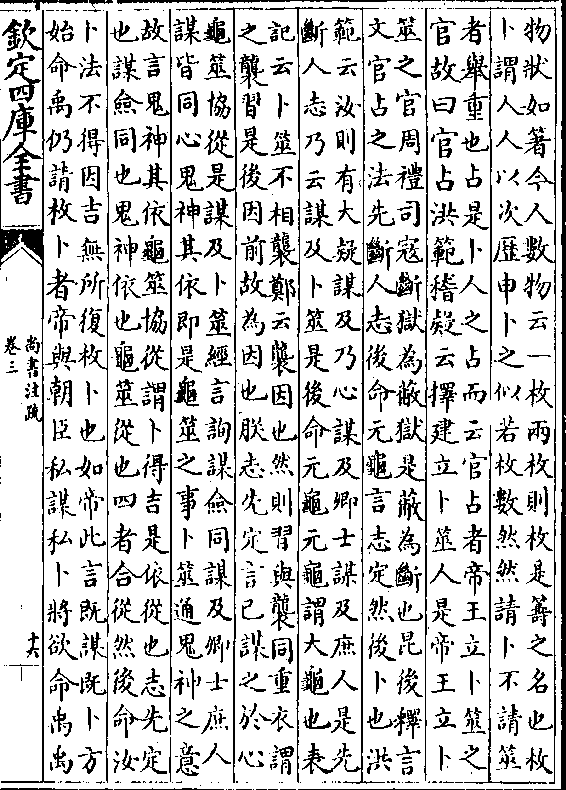 物狀如箸今人數物云一枚兩枚則枚是籌之名也枚
卜謂人人以次歷申卜之似若枚數然然請卜不請筮
者舉重也占是卜人之占而云官占者帝王立卜筮之
官故曰官占洪範稽疑云擇建立卜筮人是帝王立卜
筮之官周禮司寇斷獄為蔽獄是蔽為斷也昆後釋言
文官占之法先斷人志後命元龜言志定然後卜也洪
範云汝則有大疑謀及乃心謀及卿士謀及庶人是先
斷人志乃云謀及卜筮是後命元龜元龜謂大龜也表
記云卜筮不相襲鄭云襲因也然則習與襲同重衣謂
之襲習是後因前故為因也朕志先定言已謀之於心
龜筮協從是謀及卜筮經言詢謀僉同謀及卿士庶人
謀皆同心鬼神其依即是龜筮之事卜筮通鬼神之意
故言鬼神其依龜筮協從謂卜得吉是依從也志先定
也謀僉同也鬼神依也龜筮從也四者合從然後命汝
卜法不得因吉無所復枚卜也如帝此言既謀既卜方
始命禹仍請枚卜者帝與朝臣私謀私卜將欲命禹禹
欽定四庫全書
尚書注疏
卷三
十六